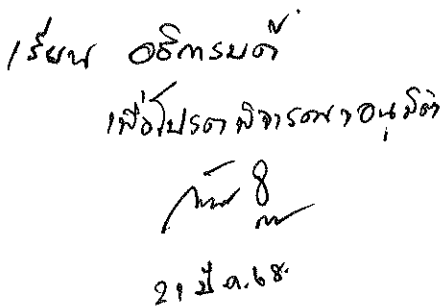 เรียน อธิการบดี
เพื่อโปรดพิจารณาอนุมัติ
21 มี.ค. 68